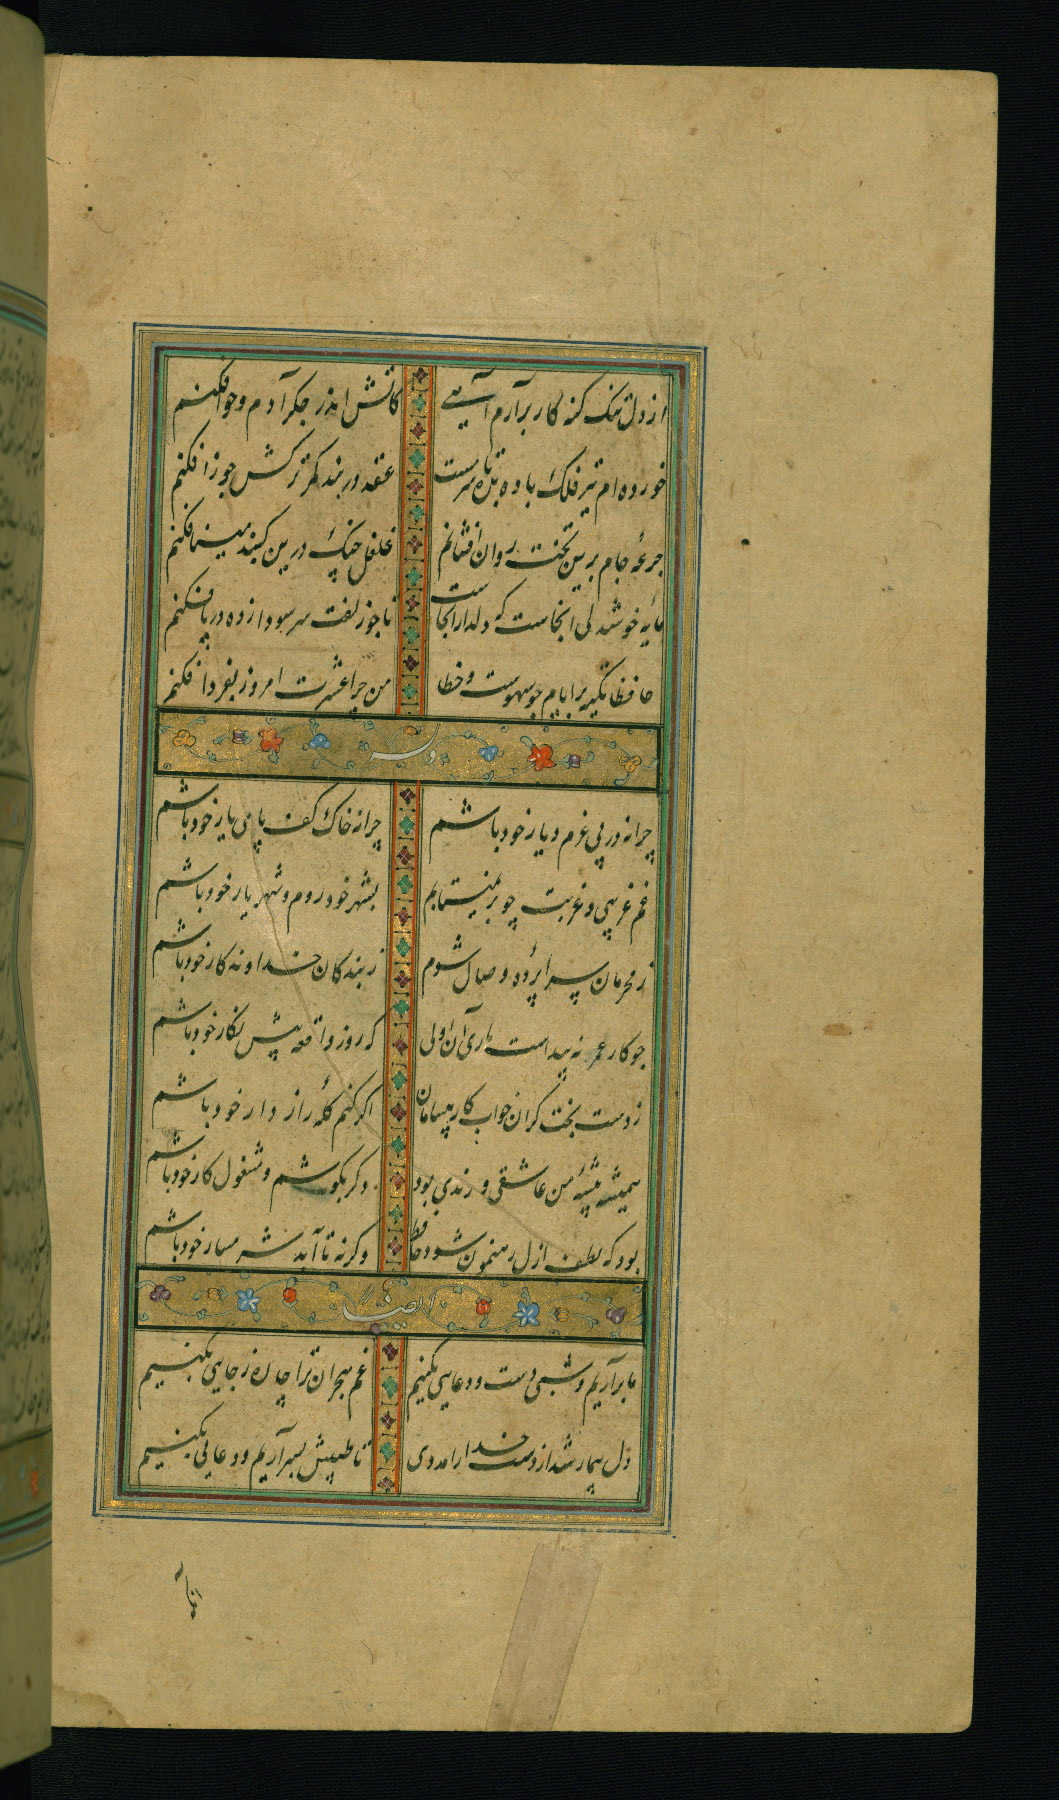 از دل تنک کنه کار برآرم آهی کاتش اندر جکر آدم و حوا فکنم
خورده‌ام تیر فلک باده بده تا سرمست عقده در بند کمر ترکش جوزا فکنم
جرعهٔ جام برین تخت روان افشانم غلغل چنک درین کنبد مینا فکنم
مایهٔ خوشدلی آنجاست که دلدار آنجاست تا جو زلفت سر سودازده در پا فکنم
حافظا تکیه بر ایام جو سهوست و خطا من چرا عشرت امروز بفردا فکنم
وله
چرا نه در پی عزم دیار خود باشم چرا نه خاک کف پای یار خود باشم
غم غریبی و غربت چو بر نمیتابم بشهر خود روم و شهریار خود باشم
ز محرمان سراپردهٔ وصال شوم ز بندکان خداوندکار خود باشم
جو کار عمر نه پیداست باری آن اولی که روز واقعه پیش نکار خود باشم
ز دست بخت کران خواب کار بیسامان اکر کنم کله راز دار خود باشم
همیشه پیشهٔ من عاشقی و رندی بود دکر بکوشم و مشغول کار خود باشم
بود که لطف ازل رهنمون شود حافظ وکرنه تا ابد شرمسار خود باشم
ایضا
ما برآریم شبی دست و دعایی بکنیم غم هجران ترا چاره ز جایی بکنیم
دل بیمار شد از دست خدا را مددی تا طبیبش بسر آریم و دعایی بکنیم